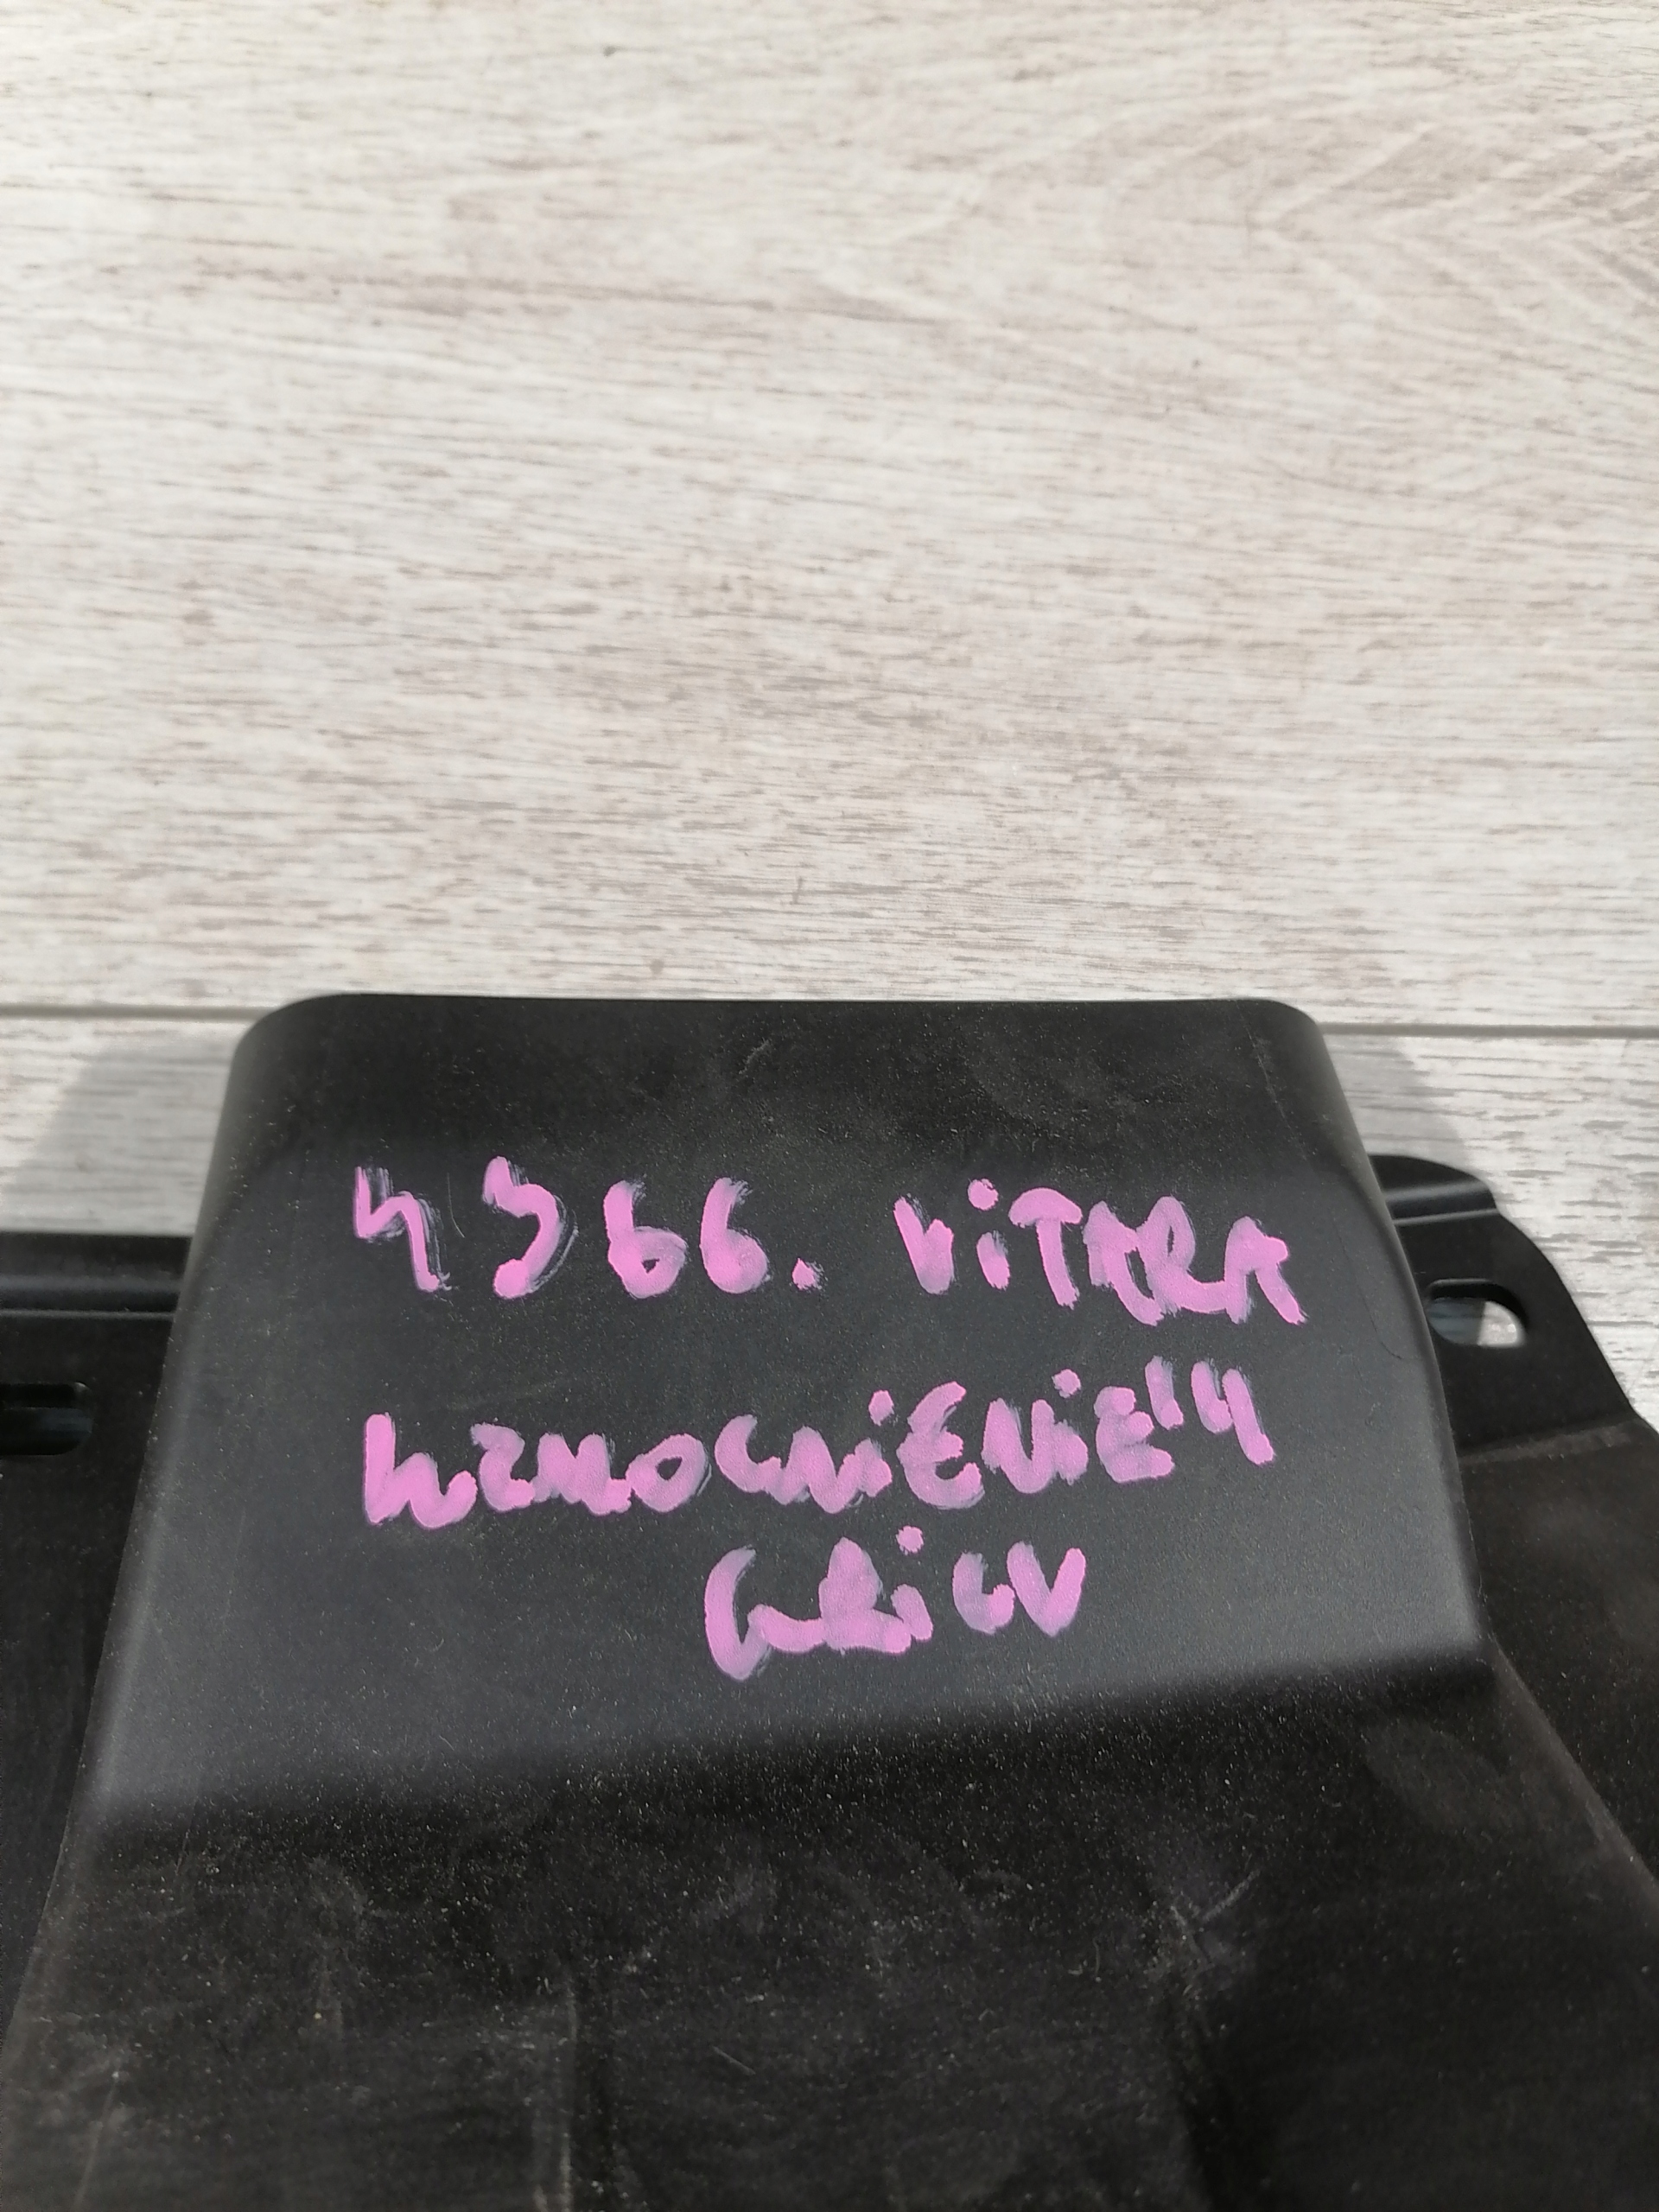 4366. ViTARA
WZMOCNiENiE"4
GRiLU